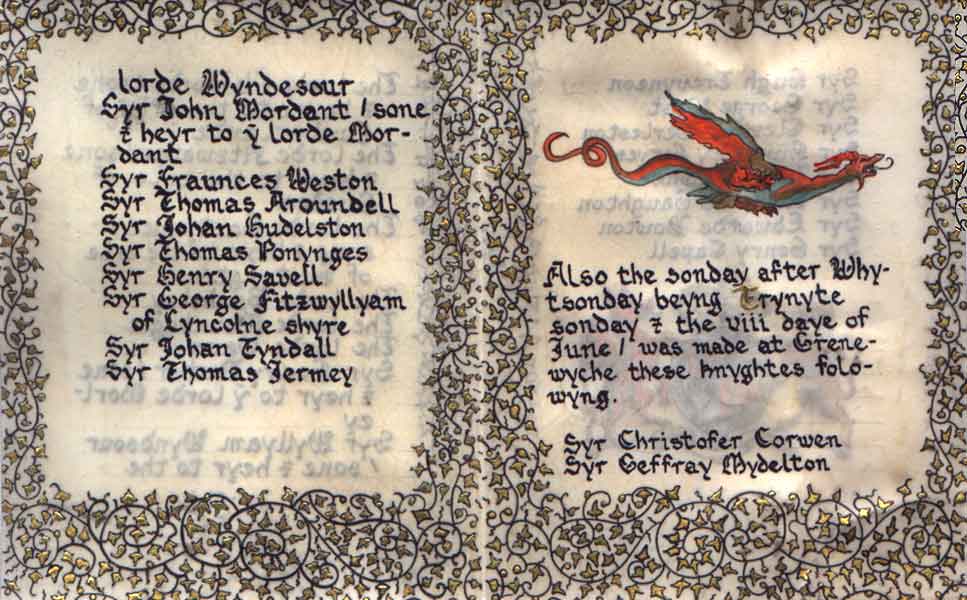 lorde Wyndesour
Syr John Mordant / sone
⁊ heyr to ẏ lorde Mor-
dant
Syr Fraunces Weston
Syr Thomas Aroundell
Syr Johan Hudelston
Syr Thomas Ponynges
Syr Henry Savell
Syr George Fitzwyllyam
of Lyncolne shyre
Syr Johan Tyndall
Syr Thomas Jermey
Also the sonday after Why-
tsonday beyng Trynyte
sonday ⁊ the viii daye of
June / was made at Grene-
wyche these knyghtes folo-
wyng.
Syr Christofer Corwen
Syr Geffray Mydelton